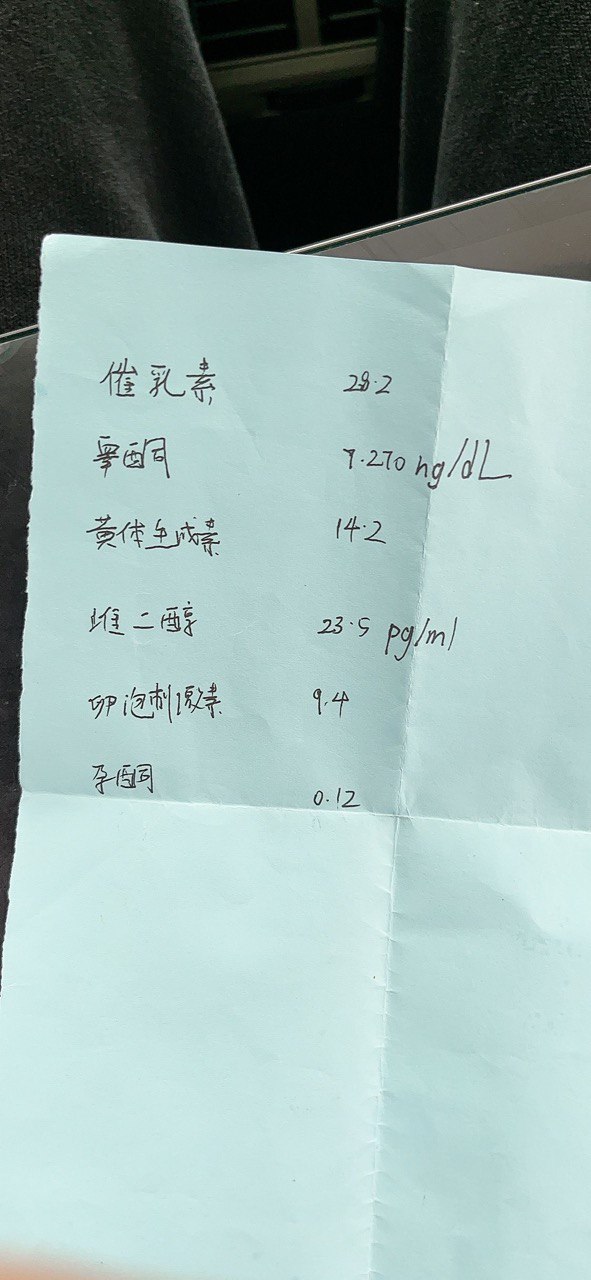 催乳素 28.2
睾酮 9.270 ng/dL
黄体生成素 14.2
雌二醇 23.5 pg/ml
卵泡刺激素 9.4
孕酮 0.12